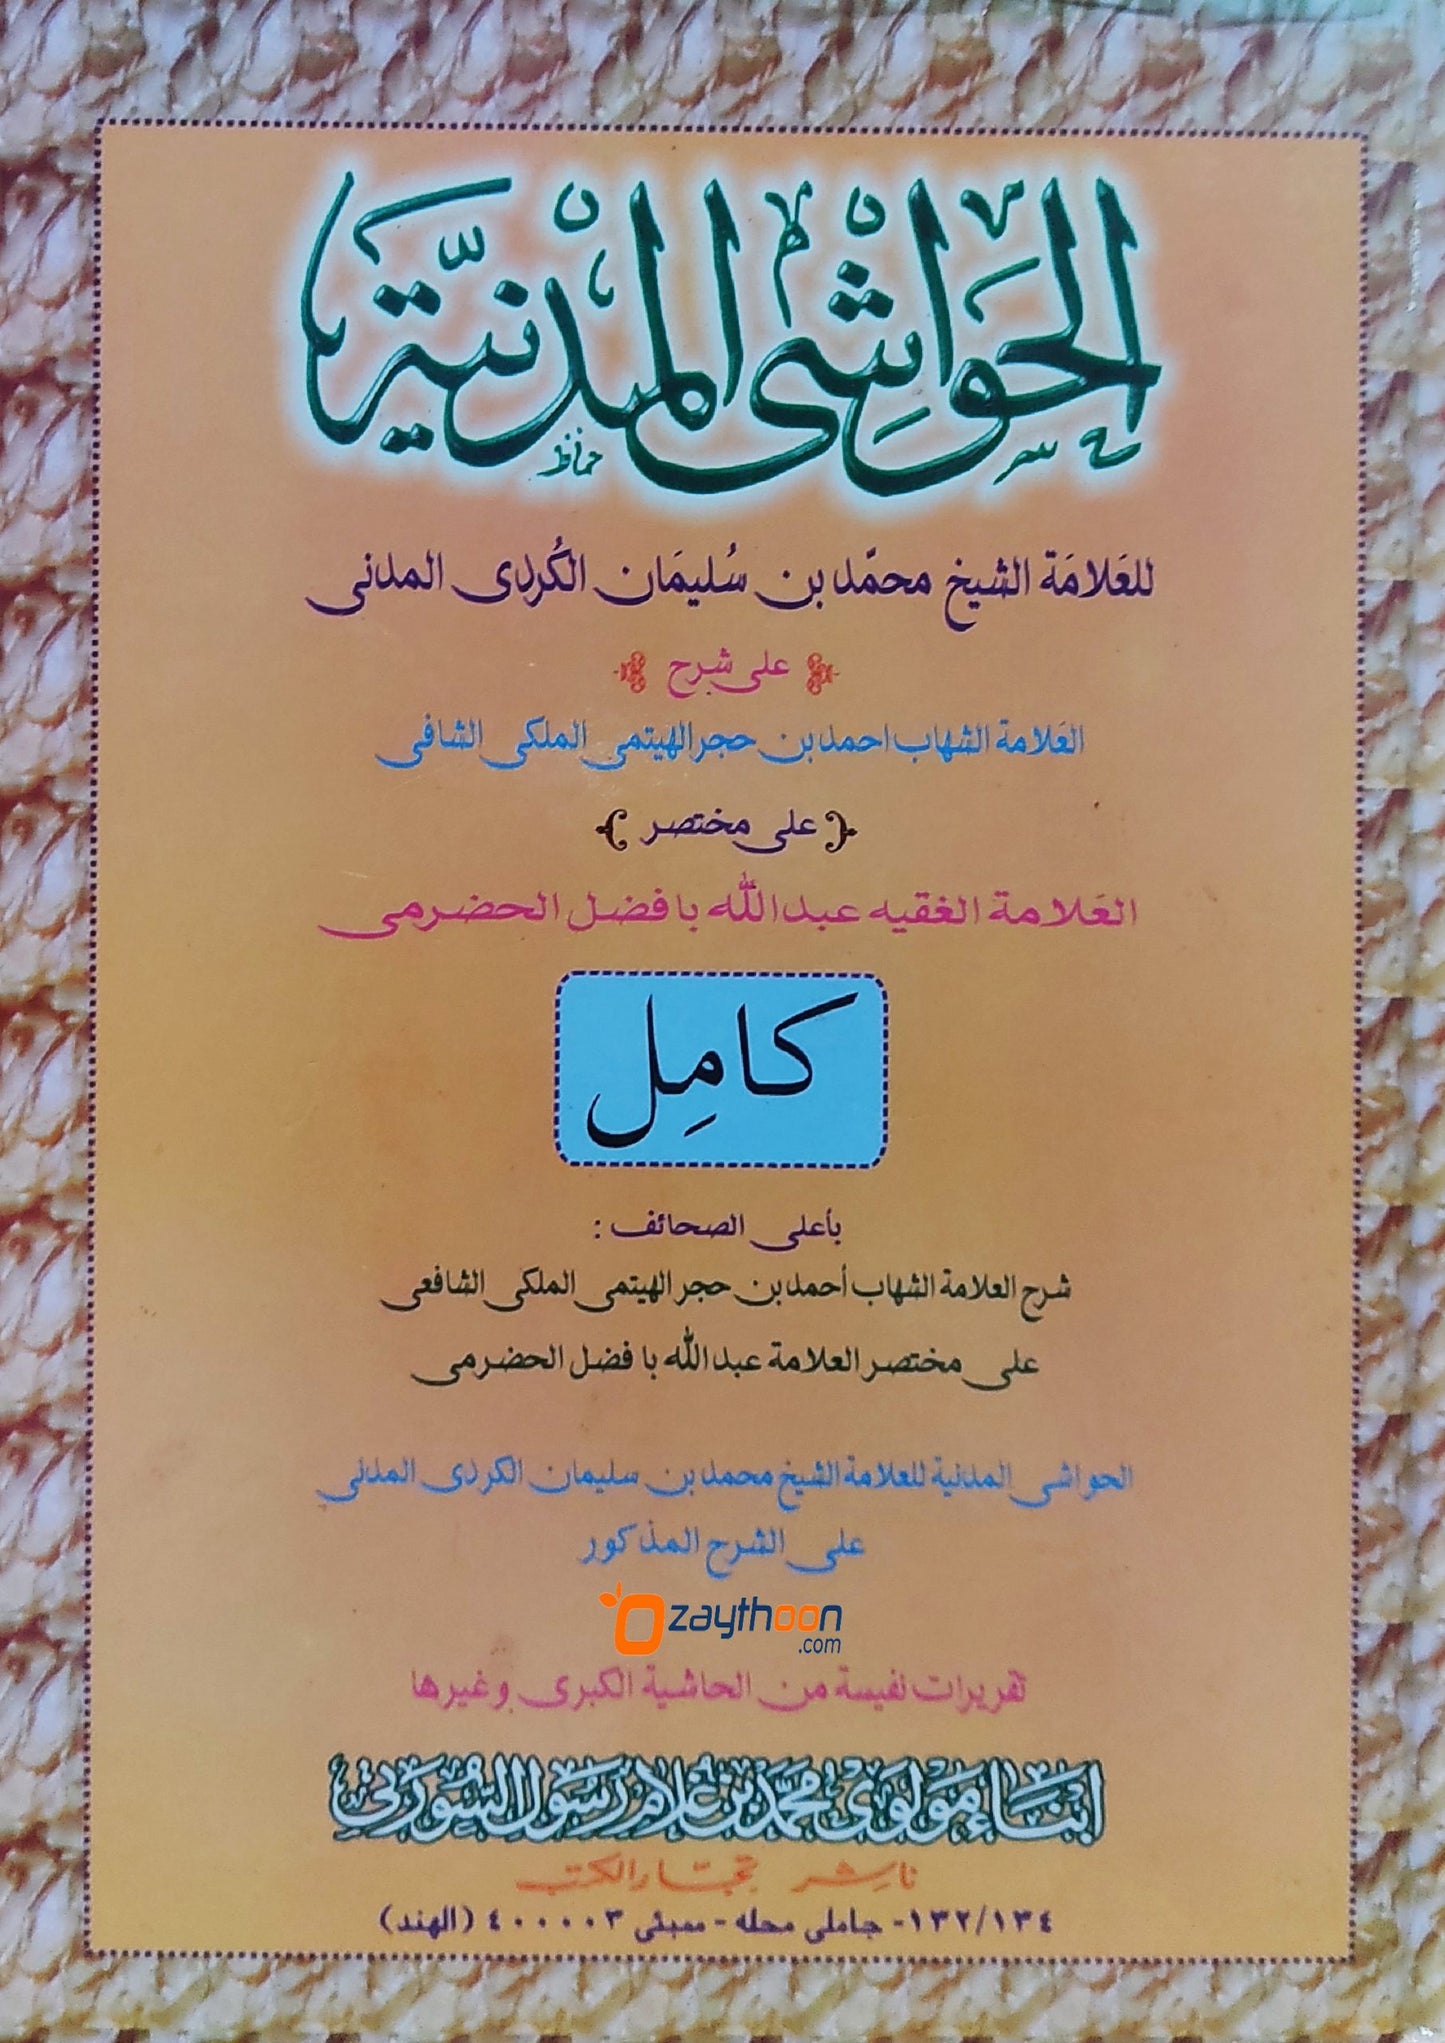 الحَوَاشِى المَدْنِيَّة
للعَلامَة الشيخ محمَّد بن سُليمَان الكُردى المدنى
على شرح
العَلامة الشهاب احمد بن حجر الهيتمى الملكى الشافى
على مختصر
العَلامة الغقيه عبد الله با فضل الحضرمى
كامِل
بأعلى الصحائف :
شرح العلامة الشهاب أحمد بن حجر الهيتمى الملكى الشافعى
على مختصر العلامة عبد الله با فضل الحضرمى
الحواشى المدنية للعلامة الشيخ محمد بن سليمان الكردى المدنى
على الشرح المذكور
zaythoon
.com
تقريرات نفيسة من الحاشية الكبرى وغيرها
ابناء مولوى محمد بن غلام رسول السورتى
ناشر تجار الكتب
١٣٢/١٣٤- جاملى محله - ممبئى ٤٠٠٠٠٣ (الهند)